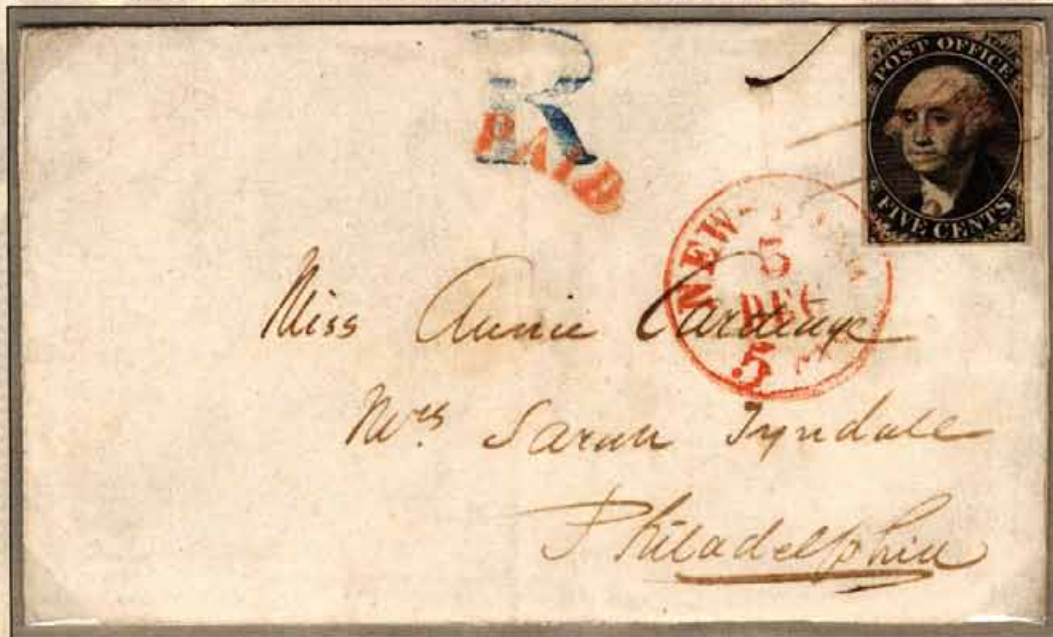 R
PAID
POST OFFICE
FIVE CENTS
NEW-
5
DEC
5
Miss Annie
Mrs Sarah Tyndale
Philadelphia